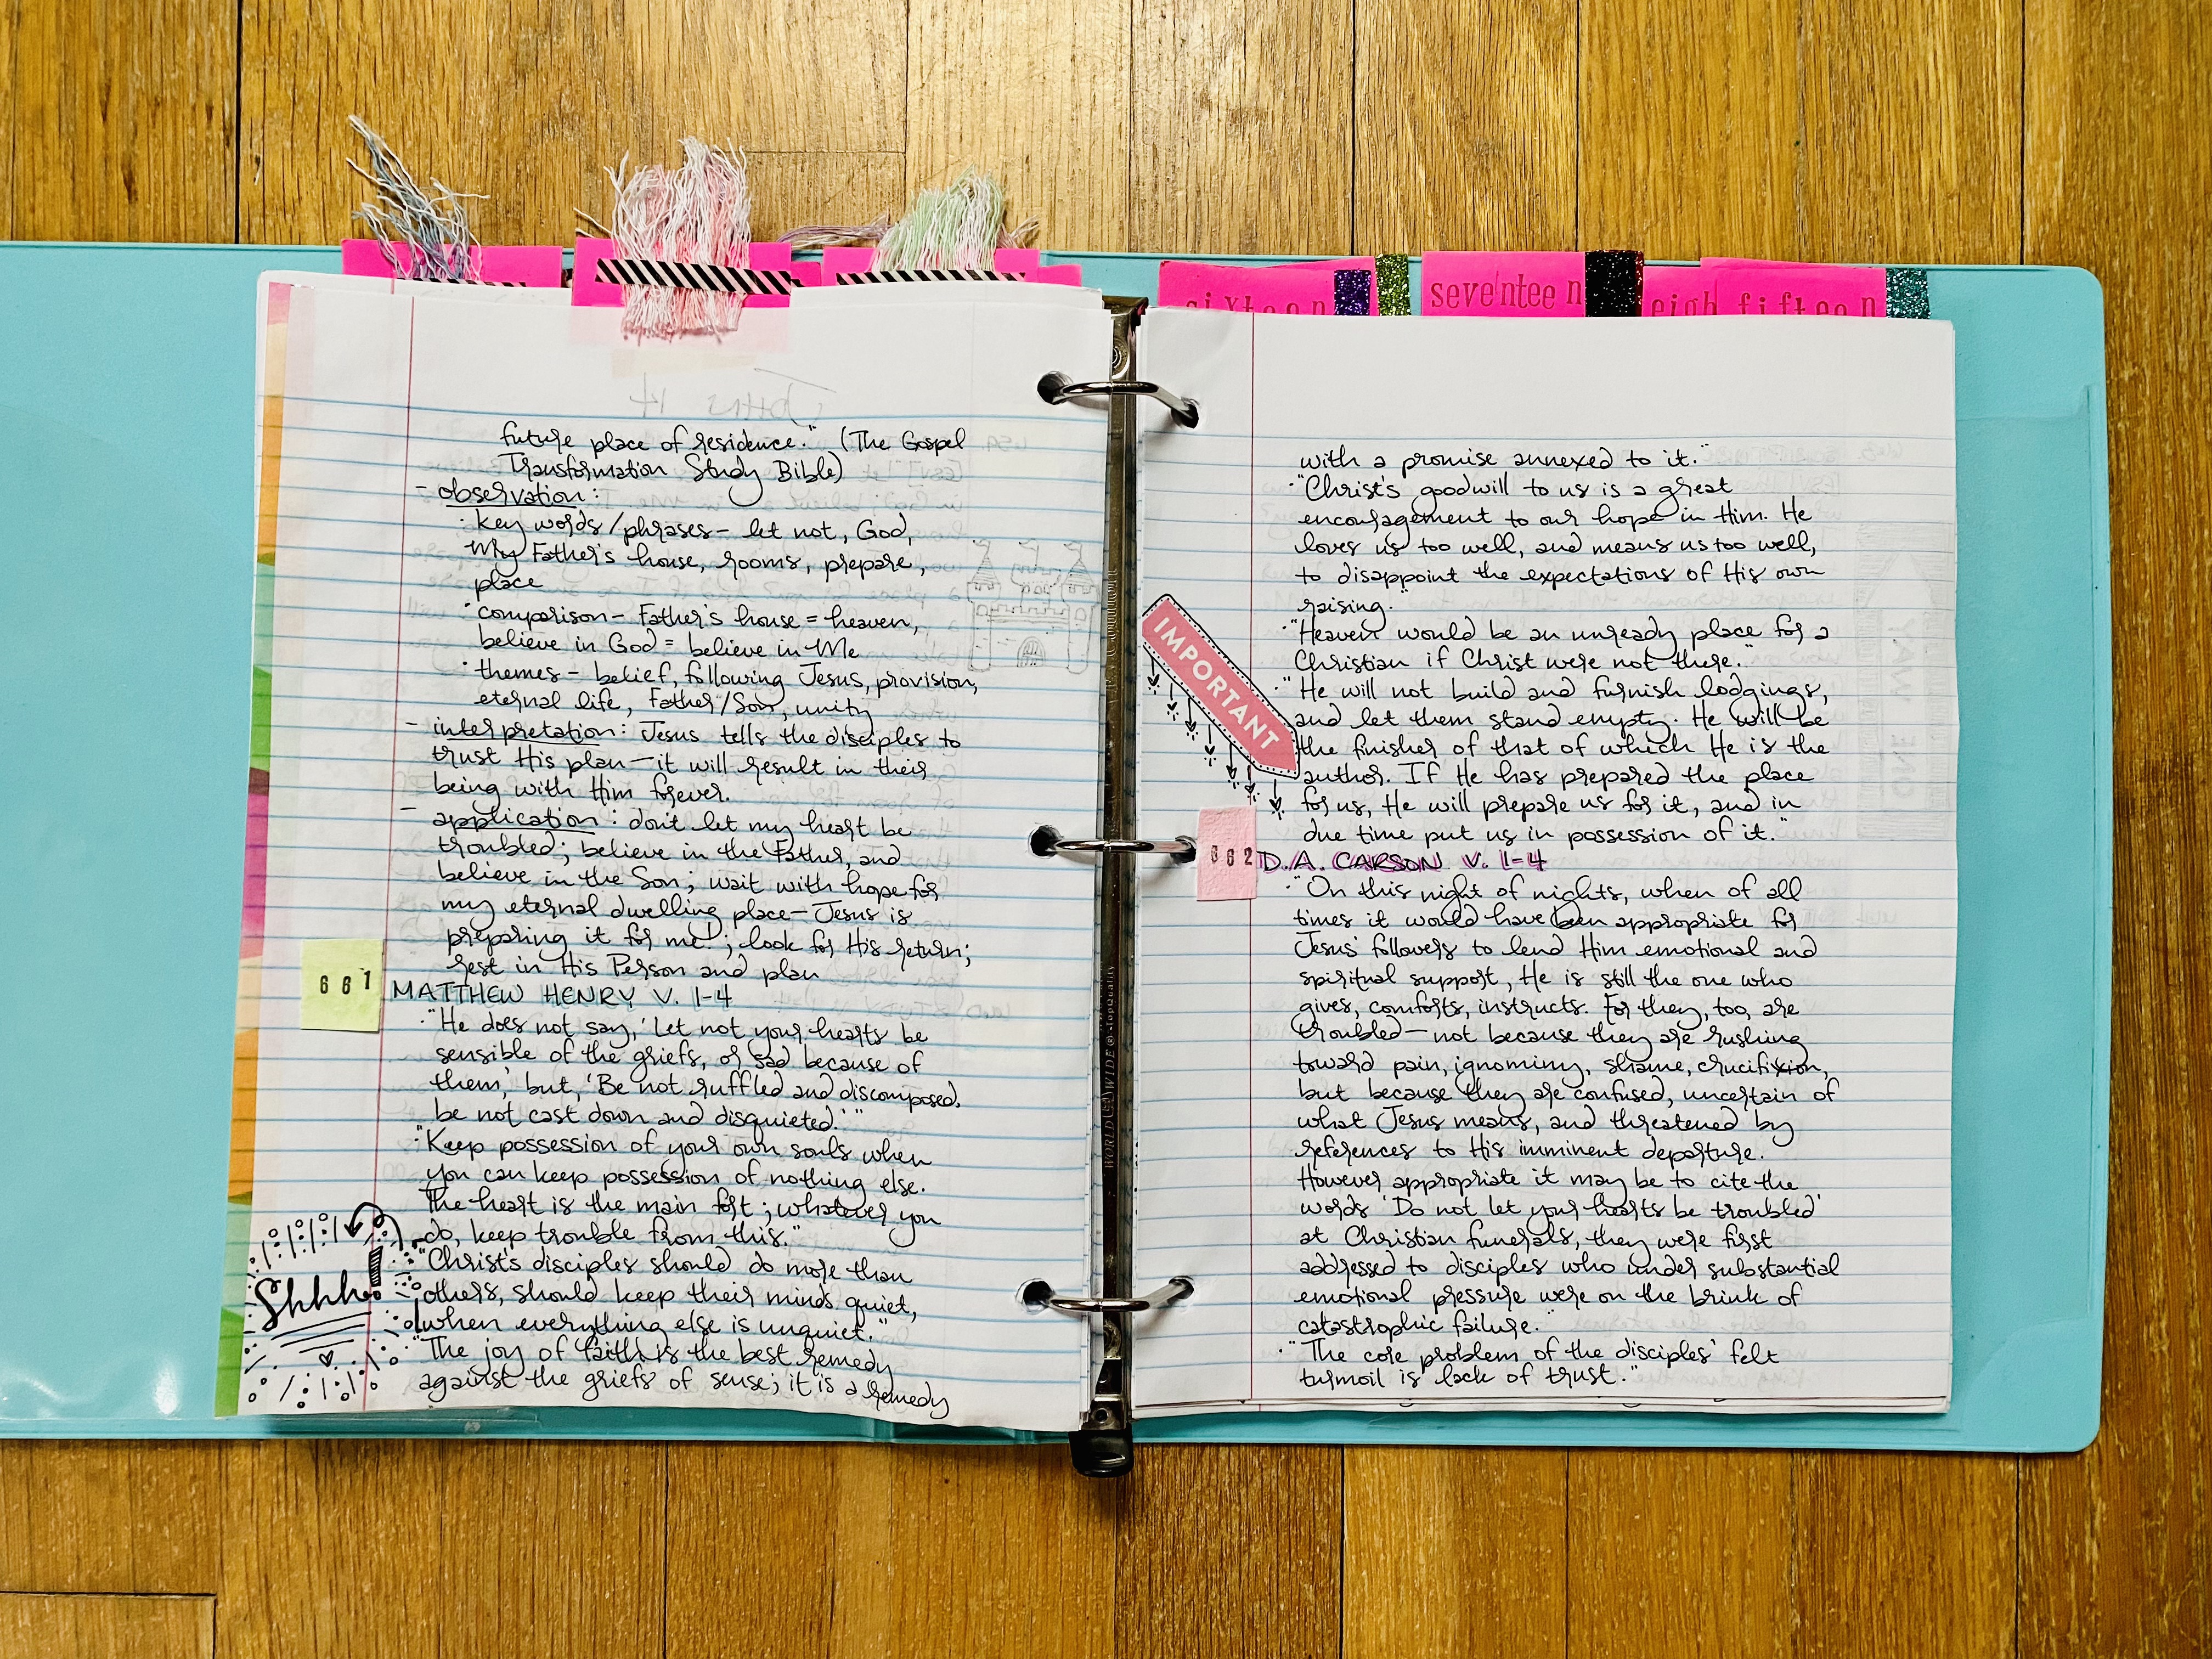 future place of residence." (The Gospel
Transformation Study Bible)
- observation:
· key words/phrases - let not, God,
My Father's house, rooms, prepare,
place
· comparison - Father's house = heaven,
believe in God = believe in Me
· themes - belief, following Jesus, provision,
eternal life, Father/Son, unity
- interpretation: Jesus tells the disciples to
trust His plan - it will result in their
being with Him forever.
- application: don't let my heart be
troubled; believe in the Father, and
believe in the Son; wait with hope for
my eternal dwelling place - Jesus is
preparing it for me!; look for His return;
rest in His Person and plan
661
MATTHEW HENRY V. 1-4
· "He does not say, 'Let not your hearts be
sensible of the griefs, or sad because of
them,' but, 'Be not ruffled and discomposed,
be not cast down and disquieted.'"
· "Keep possession of your own souls when
you can keep possession of nothing else.
The heart is the main fort; whatever you
do, keep trouble from this."
Shhh!
· "Christ's disciples should do more than
others, should keep their minds quiet,
when everything else is unquiet."
· "The joy of faith is the best remedy
against the griefs of sense; it is a remedy
sixteen
seventeen
eigh
fifteen
with a promise annexed to it."
· "Christ's goodwill to us is a great
encouragement to our hope in Him. He
loves us too well, and means us too well,
to disappoint the expectations of His own
raising."
· "Heaven would be an unready place for a
Christian if Christ were not there."
IMPORTANT
· "He will not build and furnish lodgings,
and let them stand empty. He will be
the finisher of that of which He is the
author. If He has prepared the place
for us, He will prepare us for it, and in
due time put us in possession of it."
662
D.A. CARSON V. 1-4
· "On this night of nights, when of all
times it would have been appropriate for
Jesus' followers to lend Him emotional and
spiritual support, He is still the one who
gives, comforts, instructs. For they, too, are
troubled - not because they are rushing
toward pain, ignominy, shame, crucifixion,
but because they are confused, uncertain of
what Jesus means, and threatened by
references to His imminent departure.
However appropriate it may be to cite the
words 'Do not let your hearts be troubled'
at Christian funerals, they were first
addressed to disciples who under substantial
emotional pressure were on the brink of
catastrophic failure."
· "The core problem of the disciples' felt
turmoil is lack of trust."